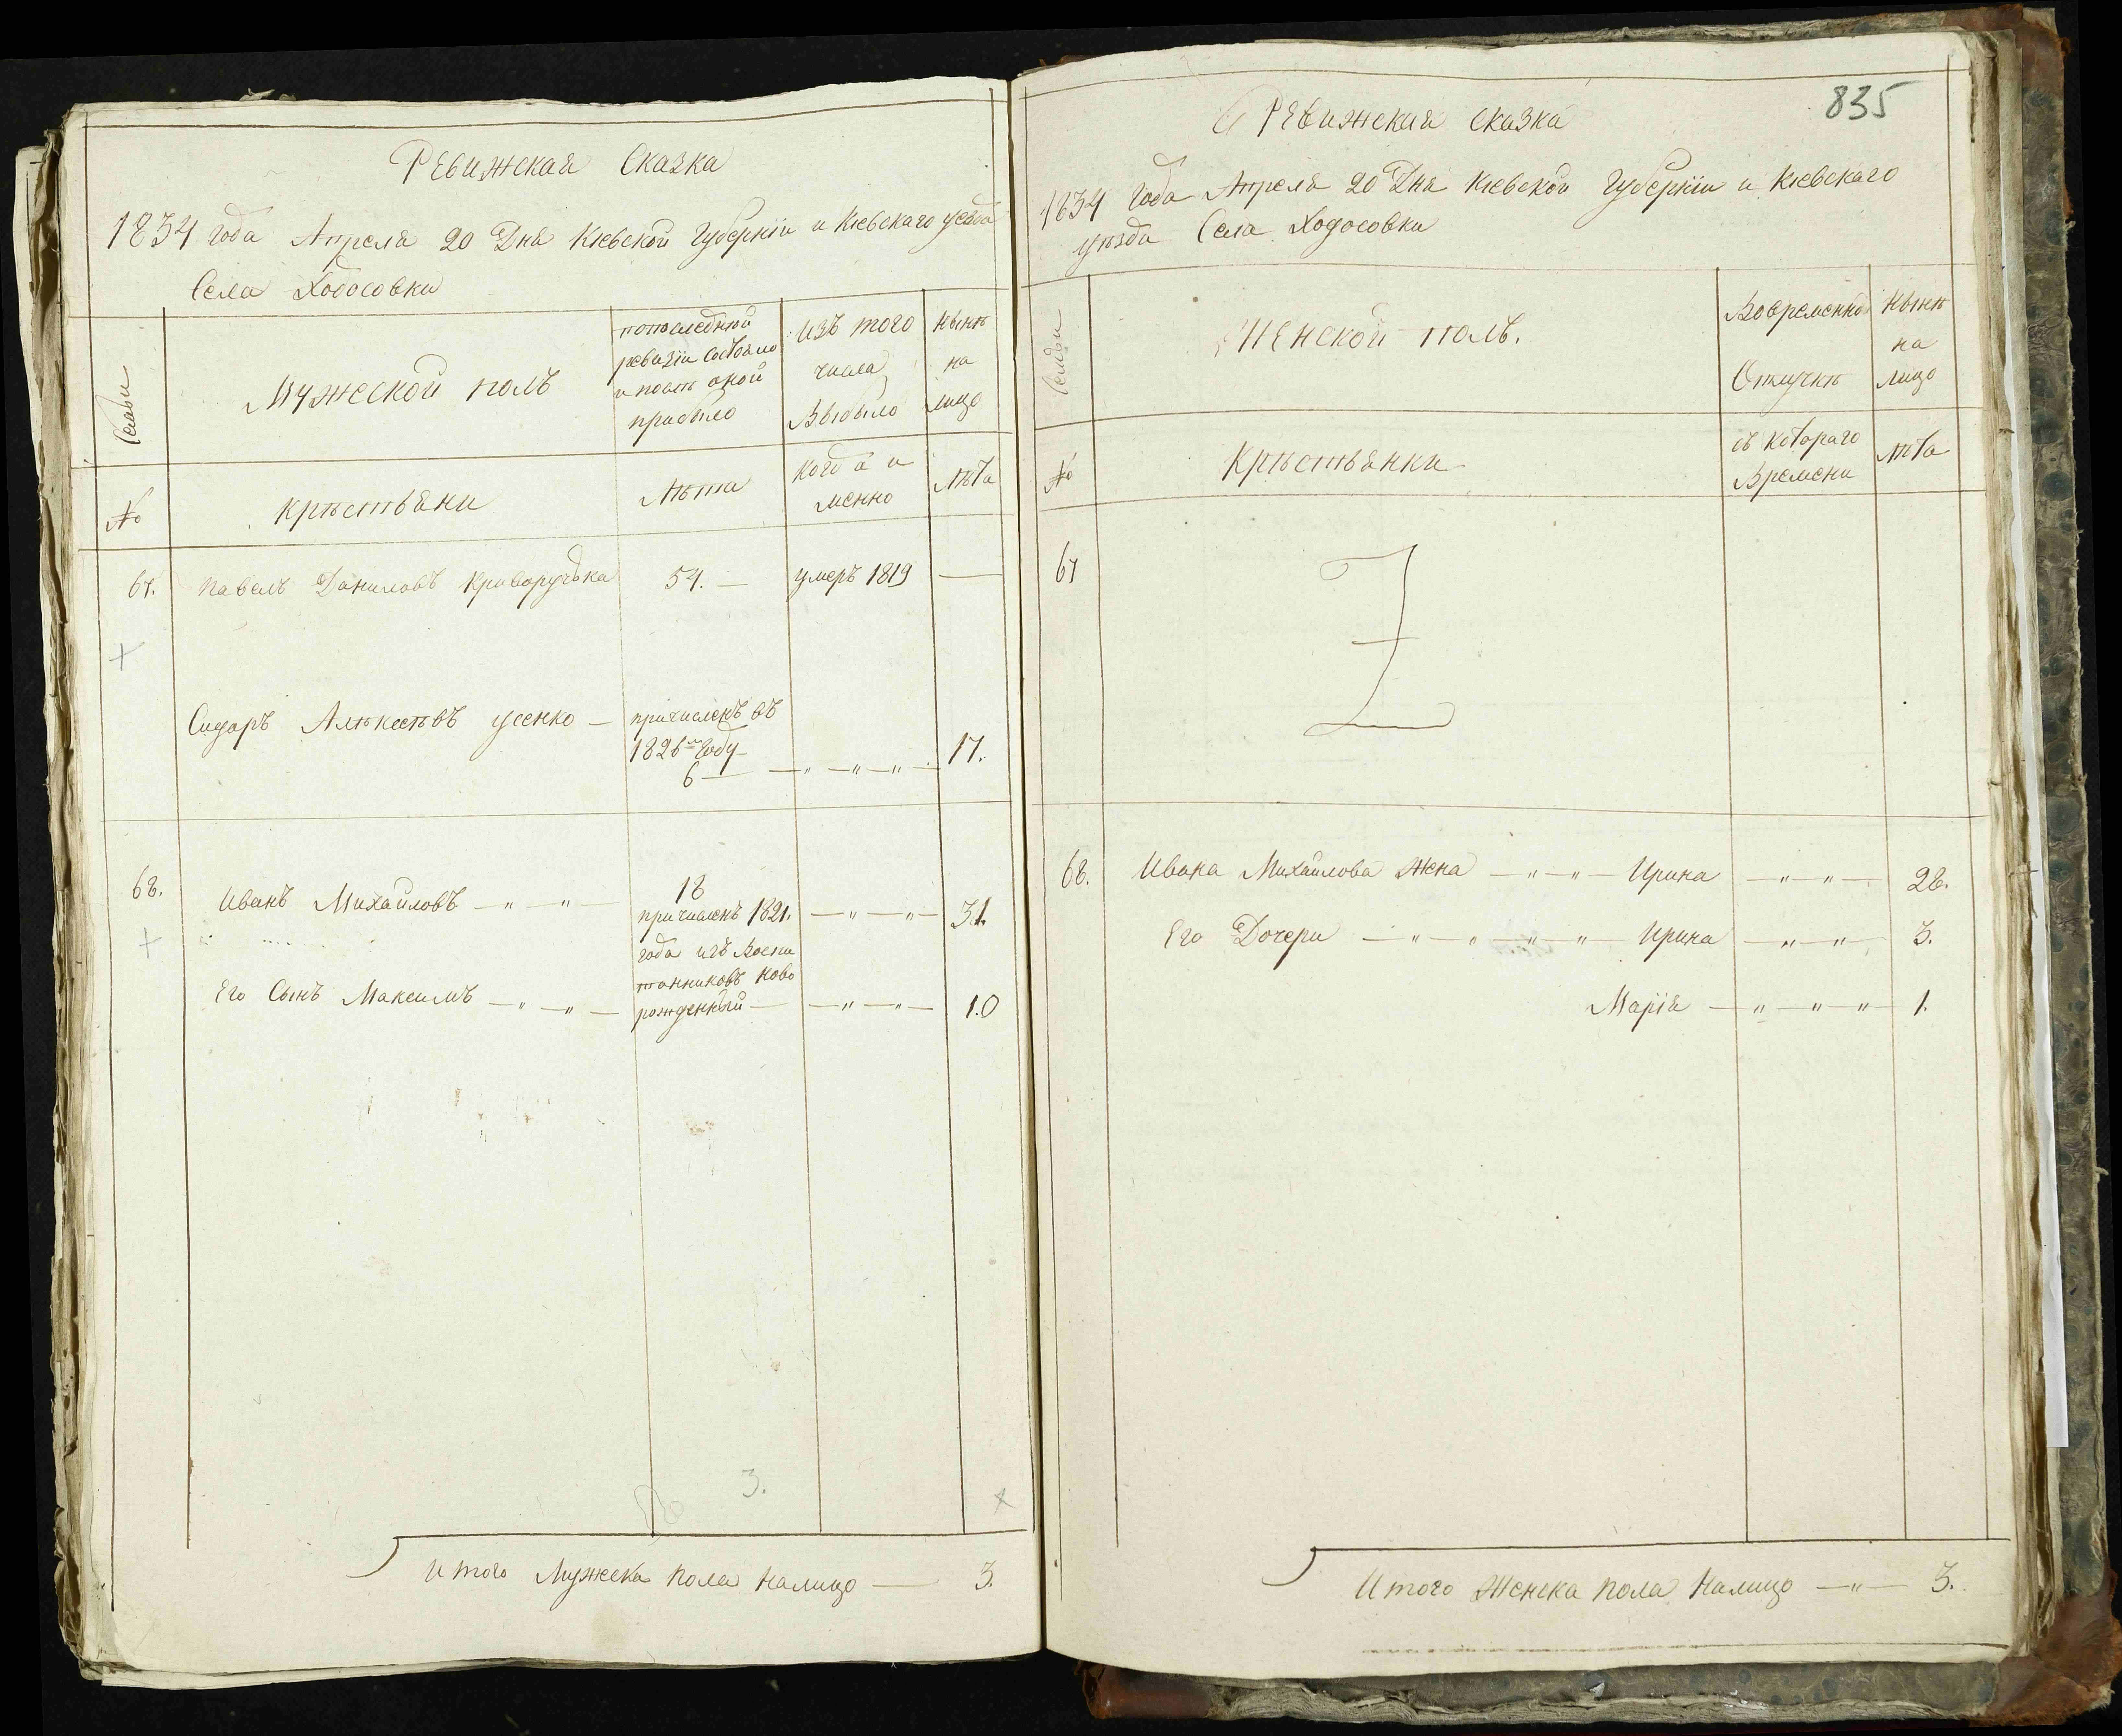 Ревижская Сказка
1834 года Апреля 20 Дня Киевской Губернїи и Киевскаго уезда
Села Ходосовки
Семьи
Мужеской полъ
попоследнюй
ревизїи Состояло
и посль оной
прибыло
изъ того
числа
Выбыло
нынѣ
на
лицо
№
крѣстьяни
Лѣта
когда и
менно
лѣта
67.
Павелъ Даниловъ Криворучька
54. —
умеръ 1819
—
Сидаръ Алѣксѣевъ усенко —
причисленъ въ
1826м Году
6 — — „ — „ — „ —
17.
68.
Иванъ Михайловъ — „ — „ —
18
причисленъ 1821.
года изъ Воспи
танниковъ Ново
рожденный —
— „ — „ —
31.
Его Сынъ Максимъ — „ — „ —
— „ — „ —
1.0
3.
Итого Мужеска пола налицо — 3.
835
Ревижская сказка
1834 года Апреля 20 Дня Киевской Губернїи и Киевскаго
уѣзда Села Ходосовки
Семьи
Женской полъ.
Вовременной
Отлучкѣ
Нынѣ
на
лицо
№
Крѣстьянки
съ котораго
Времени
лѣта
67
68.
Ивана Михайлова жена — „ — „ — Ирина — „ — „ — 28.
Его Дочери — „ — „ — „ — „ — Ирина — „ — „ — 3.
Марїя — „ — „ — „ — 1.
Итого Женска пола Налицо — „ — 3.